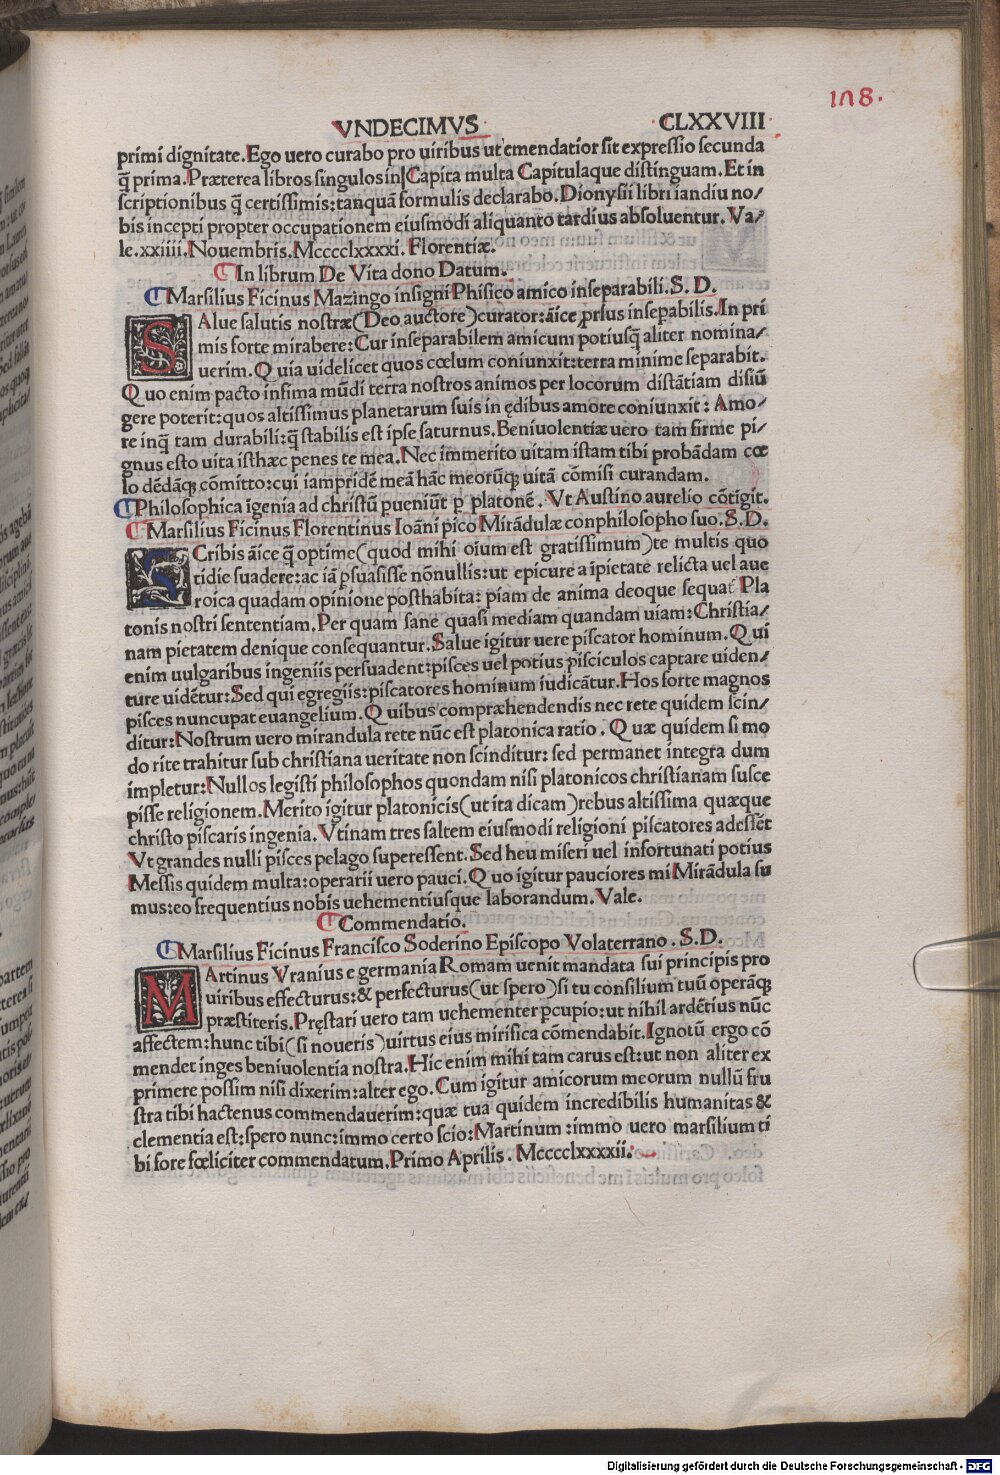 178.
VNDECIMVS CLXXVIII
primi dignitate. Ego uero curabo pro uiribus ut emendatior sit expressio secunda
q̃ prima. Præterea libros singulos in Capita multa Capitulaque distinguam. Et in
scriptionibus q̃ certissimis: tanquã formulis declarabo. Dionysii libri iandiu no/
bis incepti propter occupationem eiusmodi aliquanto tardius absoluentur. Va/
le. xxiiii. Nouembris. Mcccclxxxxi. Florentiæ.
In librum De Vita dono Datum.
Marsilius Ficinus Mazingo insigni Phisico amico inseparabili. S. D.
SAlue salutis nostræ (Deo auctore) curator: aĩce prsus insepabilis. In pri
mis forte mirabere: Cur inseparabilem amicum potiusq̃ aliter nomina/
uerim. Quia uidelicet quos cœlum coniunxit: terra minime separabit.
Quo enim pacto infima mũdi terra nostros animos per locorum distãtiam disiũ
gere poterit: quos altissimus planetarum suis in ędibus amore coniunxit: Amo/
re inq̃ tam durabili: q̃ stabilis est ipse saturnus. Beniuolentiæ uero tam firme pi/
gnus esto uita isthæc penes te mea. Nec immerito uitam istam tibi probãdam cœ
lo dẽdãq; cõmitto: cui iampridẽ meã hãc meorũq; uitã cõmisi curandam.
Philosophica ĩgenia ad christũ pueniũt p platonẽ. Vt Austino aurelio cõtigit.
Marsilius Ficinus Florentinus Ioãni pico Mirãdulæ conphilosopho suo. S. D.
SCribis aĩce q̃ optime (quod mihi oĩum est gratissimum) te multis quo
tidie suadere: ac iã psuasisse nõnullis: ut epicure a ĩpietate relicta uel aue
roica quadam opinione posthabita: piam de anima deoque sequãt Pla
tonis nostri sententiam. Per quam sane quasi mediam quandam uiam: Christia/
nam pietatem denique consequantur. Salue igitur uere piscator hominum. Qui
enim uulgaribus ingeniis persuadent: pisces uel potius pisciculos captare uiden/
ture uidẽtur: Sed qui egregiis: piscatores hominum iudicãtur. Hos forte magnos
pisces nuncupat euangelium. Quibus compræhendendis nec rete quidem scin/
ditur: Nostrum uero mirandula rete nũc est platonica ratio. Quæ quidem si mo
do rite trahitur sub christiana ueritate non scinditur: sed permanet integra dum
impletur: Nullos legisti philosophos quondam nisi platonicos christianam susce
pisse religionem. Merito igitur platonicis (ut ita dicam) rebus altissima quæque
christo piscaris ingenia. Vtinam tres saltem eiusmodi religioni piscatores adessẽt
Vt grandes nulli pisces pelago superessent. Sed heu miseri uel infortunati potius
Messis quidem multa: operarii uero pauci. Quo igitur pauciores mi Mirãdula su
mus: eo frequentius nobis uehementiusque laborandum. Vale.
Commendatio.
Marsilius Ficinus Francisco Soderino Episcopo Volaterrano. S. D.
MArtinus Vranius e germania Romam uenit mandata sui principis pro
uiribus effecturus: & perfecturus (ut spero) si tu consilium tuũ operãq;
præstiteris. Pręstari uero tam uehementer pcupio: ut nihil ardẽtius nũc
affectem: hunc tibi (si noueris) uirtus eius mirifica cõmendabit. Ignotũ ergo cõ
mendet inges beniuolentia nostra. Hic enim mihi tam carus est: ut non aliter ex
primere possim nisi dixerim: alter ego. Cum igitur amicorum meorum nullũ fru
stra tibi hactenus commendauerim: quæ tua quidem incredibilis humanitas &
clementia est: spero nunc: immo certo scio: Martinum: immo uero marsilium ti
bi fore fœliciter commendatum. Primo Aprilis. Mcccclxxxxii.
Digitalisierung gefördert durch die Deutsche Forschungsgemeinschaft - DFG